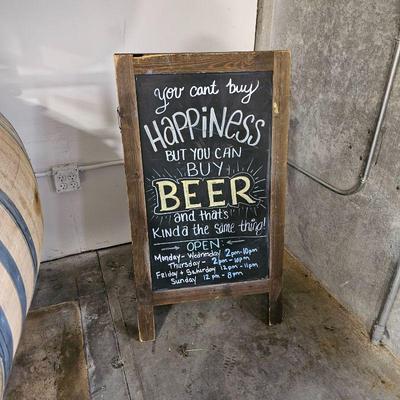 you cant buy
HAPPINESS
BUT YOU CAN
BUY
BEER
and that's
KINDA the same thing!
OPEN
Monday - Wednesday 2pm-10pm
Thursday - 2pm - 10pm
Friday + Saturday 12pm - 11pm
Sunday 12pm - 8pm